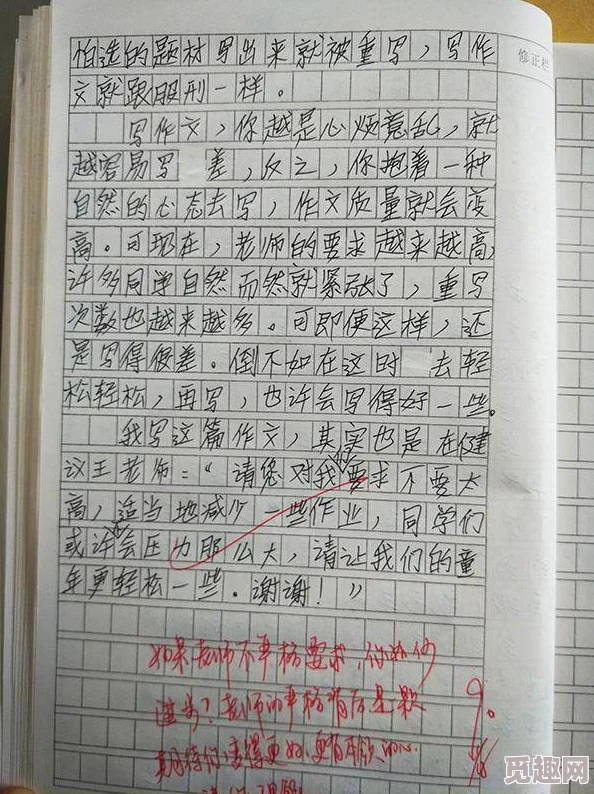 修正栏
怕选的题材写出来就被重写，写作
文就跟服刑一样。
写作文，你越是心烦意乱，就
越容易写 差，反之，你抱着一种
自然的心态去写，作文质量就会变
高。可现在，老师的要求越来越高，
许多同学自然而然就紧张了，重写
次数也越来越多。可即使这样，还
是写得很差。倒不如在这时 去轻
松轻松，再写，也许会写得好一些。
我写这篇作文，其实也是在健
议王老师：“请您对我要求不要太
高，适当地减少一些作业，同学们
或许会压力那么大，请让我们的童
年更轻松一些．谢谢！”
如果老师不严格要求，你如何
进步？老师的严格背后是一颗
期待你变得更好，更有本领的心．
觅趣网